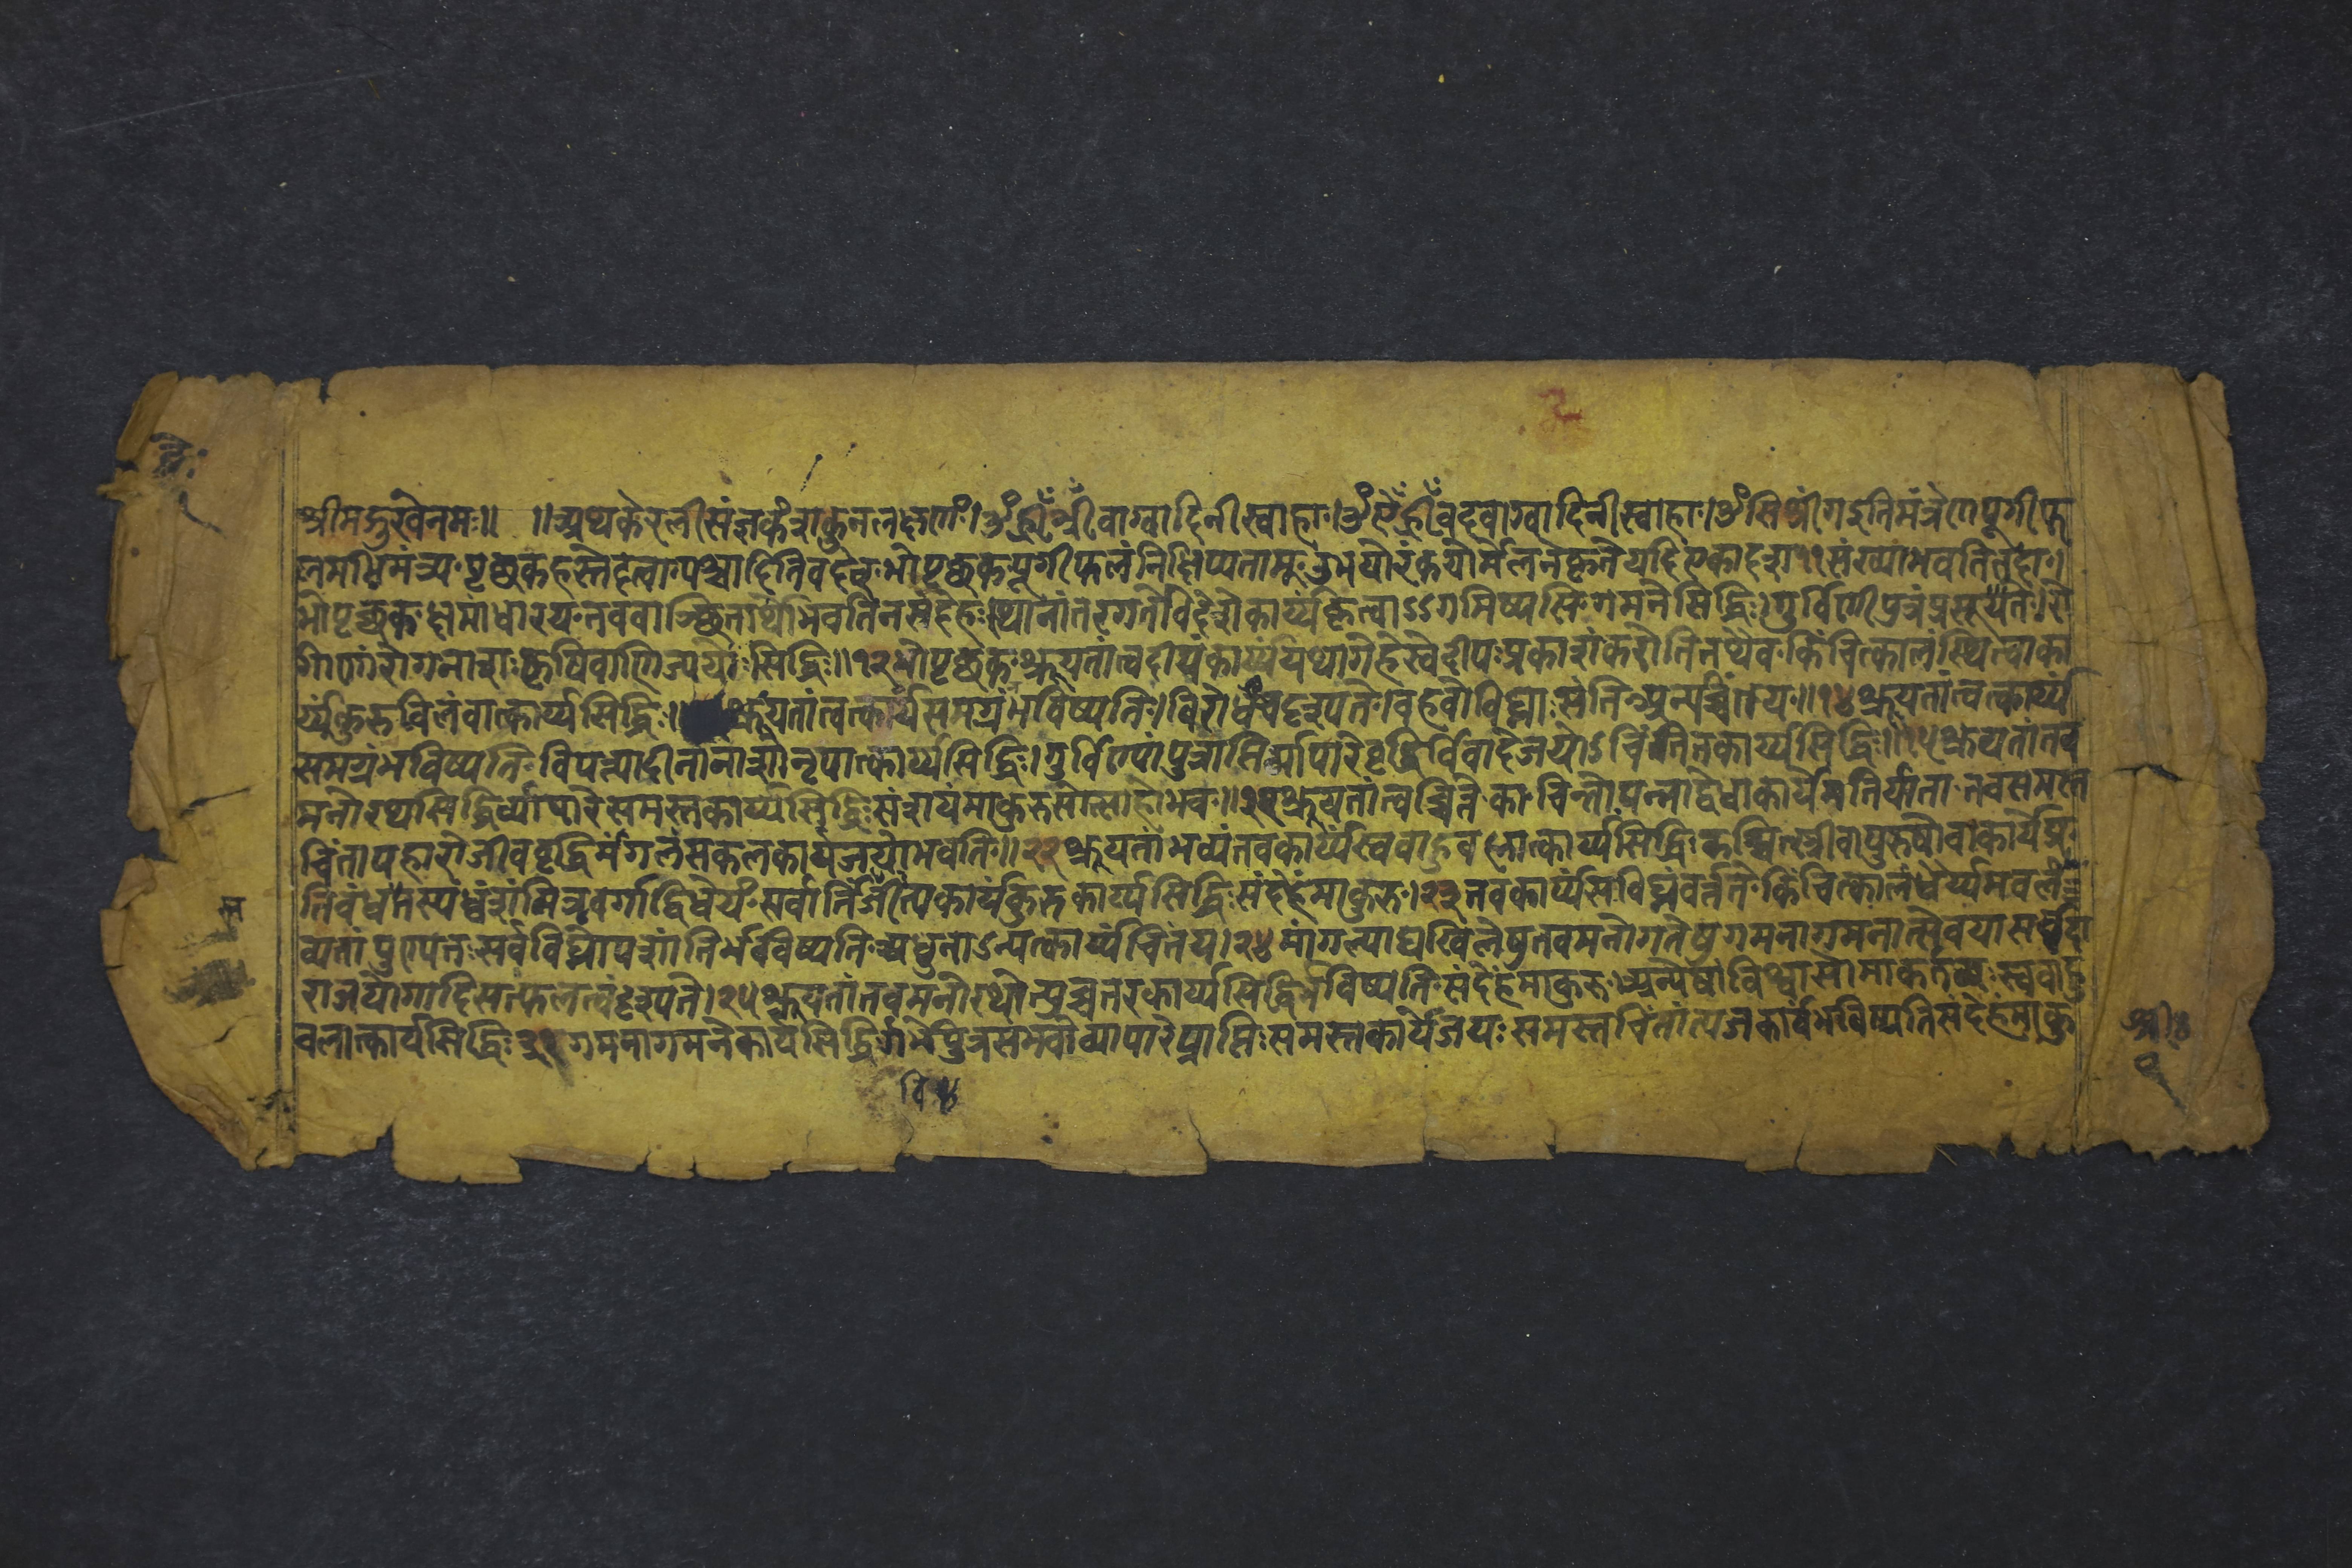 श्रीमद्गुरवेनमः॥ ॥अथकेरलीसंज्ञकंशकुनलक्षणं।ॐह्रीँश्रीँवाग्वादिनीस्वाहा।ॐऐँह्रीँवदवाग्वादिनीस्वाहा।ॐसिश्रींगइतिमंत्रेणपूगीफ
लमभिमंत्र्यपृछकहस्तेदत्वापश्चादितिवदेत्भोपृछकपूगीफलंनिक्षिप्यतामुउभयोरंकयोर्मेलनकृतेयदिएकादश११संख्याभवतितदा।
भोपृछकक्षमांधारयतववाञ्छितार्थोभवतिनसंदेहःस्थानांतरगतेविदेशेकार्य्यंकृत्वाऽऽगमिष्यसिगमनेसिद्धिः।गुर्विणीपुत्रंप्रसूयते।रो
गिणांरोगनाशःकृषिवाणिज्ययोःसिद्धिः॥१२भोपृछकश्रूयतांत्वदीयंकार्य्यंयथागेहेस्वेदीपःप्रकाशंकरोतितथैवकिंचित्कालंस्थित्वाका
र्य्यंकुरुविलंवात्कार्य्यसिद्धिः॥ श्रूयतांत्वत्कार्यंसमग्रंभविष्यति।विरोधंचदृश्यते।वहवोविघ्नाःसंतिअन्यच्चिंतय॥१४श्रूयतांत्वत्कार्य्यं
समग्रंभविष्यतिविपत्यादीनांनाशोनृपात्कार्य्यसिद्धिः।गुर्विण्यांपुत्राप्तिर्व्यापारेवृद्धिर्विवादेजयोऽचिंतितकार्य्यसिद्धिः॥१५श्रूयतांतव
मनोरथसिद्धिर्व्यापारेसमस्तकार्य्यसिद्धिःसंशयंमाकुरुसोत्साहोभव॥२१श्रूयतांत्वच्चित्तेकाचिन्तोपन्नाद्विधाकार्यमतिर्यातातवसमस्त
चिंतापहारोजीववृद्धिर्मंगलंसकलकार्यजयोभवति॥२२श्रूयतांभव्यंतवकार्य्यंस्ववाहुवलात्कार्य्यसिद्धिःकश्चित्स्त्रीवापुरुषोवाकार्यप्र
तिवंधतस्यध्वंशंमित्रवर्गाद्विधेयं।सर्वान्निर्जीत्यकार्यंकुरुकार्य्यसिद्धिःसंदेहंमाकुरु।२३तवकार्य्यसिविघ्नंवर्त्ततेकिंचित्कालंधैर्य्यमवलं
व्यतांपुण्यतःसर्वविघ्नोपशांतिर्भविष्यतिअधुनाऽन्यत्कार्य्यंचिंतय।२४मांगल्याद्यखिलेषुतवमनोगतेषुगमनागमनात्सैवयासर्वदा
राजयोगादिसत्फलत्वंदृश्यते।२५श्रूयतांतवमनोरथोत्प्रच्चतरकार्य्यसिद्धिर्भविष्यतिसंदेहंमाकुरुअन्येषांविश्वासोमाकर्तव्यःस्ववाहु
वलात्कार्यसिद्धिः३१गमनागमनेकार्यसिद्धिर्गर्भेपुत्रसंभवोव्यापारेप्राप्तिःसमस्तकार्येजयःसमस्तचिंतांत्यजकार्यंभविष्यतिसंदेहंमाकु
श्रीः
१
वि४